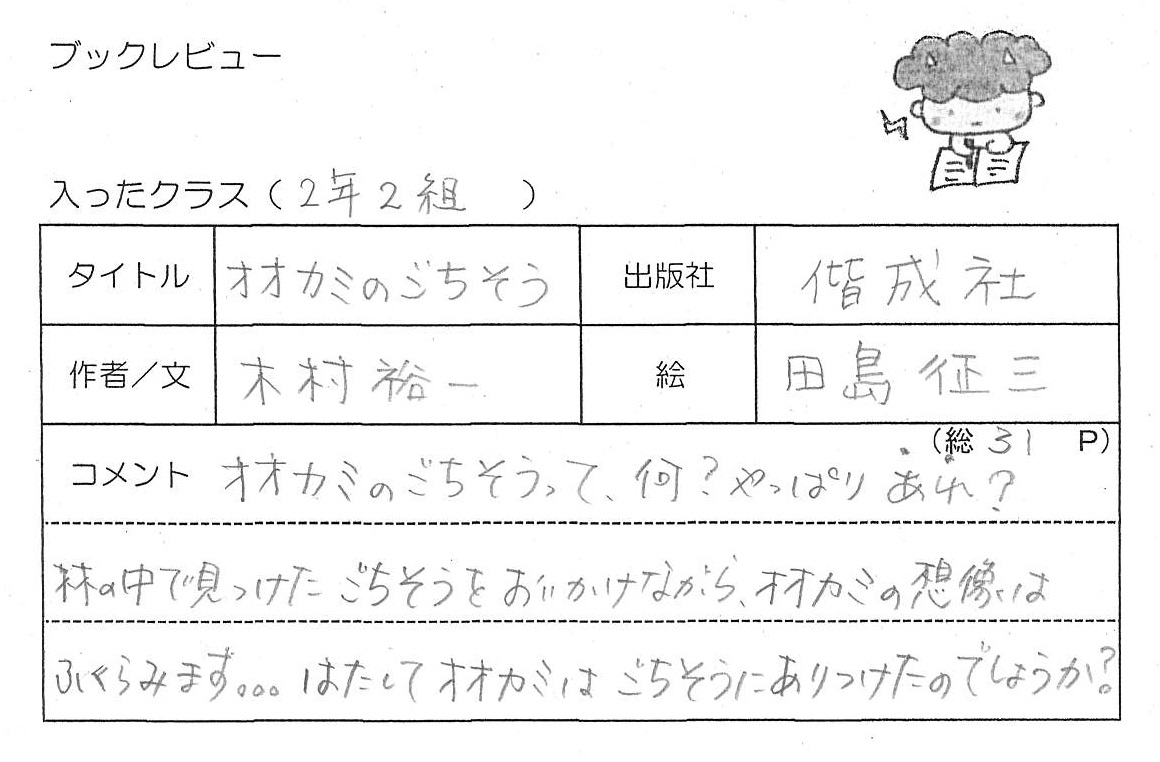 ブックレビュー
入ったクラス(2年2組 )
タイトル オオカミのごちそう 出版社 偕成社
作者/文 木村裕一 絵 田島征三
(総31 P)
コメント オオカミのごちそうって、何?やっぱりあれ?
林の中で見つけたごちそうをおいかけながら、オオカミの想像は
ふくらみます。。。はたしてオオカミはごちそうにありつけたのでしょうか?